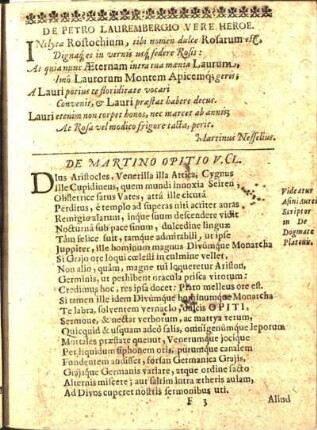 DE PETRO LAUREMBERGIO VERE HEROE.
INclyta Rostochium, tibi nomen dulce Rosarum est,
Dignaq́; es in vernis usq́; sedere Rosis:
At quia nunc Æternam intra tua mœnia Laurum,
Imò Laurorum Montem Apicemq́; geris;
A Lauri potius te floriditate vocari
Convenit, & Lauri præstat habere decus.
Lauri etenim non torpet honos, nec marcet ab annis;
At Rosa vel modico frigore tacta, perit.
Martinus Nesselius.
DE MARTINO OPITIO V. CL.
DIus Aristocles, Venerilla illa Attica, Cygnus
Ille Cupidineus, quem mundi innoxia Seiren
Obstetrice satus Vates, atrâ ille cicutâ
Perditus, è templo ad superas niti aciter auras
Remigio alarum, inque suum descendere vidit
Nocturnâ sub pace sinum, dulcedine linguæ
Tàm felice suit, tamque admirabili, ut ipse
Juppiter, ille hominum magnus Divûmque Monarcha
Si Grajo ore loqui cœlesti in culmine vellet,
Non alio, quàm, magne tui loqueretur Ariston,
Germinis, ut perhibent oracula prisca virorum:
Credimus hoc, res ipsa docet: Plato melleus ore est.
Si tamen ille idem Divûmque hominumque Monarcha
Te labra, solventem vernaclo, dulcis OPITI,
Sermone, & nectar verborum, ac mattya rerum,
Quicquid & usquam adeò salis, omnigenûmque leporum
Mortales præstate queunt, Venerumque jocique
Per liquidum siphonem oris, purumque canalem
Fundentem audisset, forsan Germanica Grajis,
Grajaque Germanis variare, atque ordine facto
Alternis miscere; aut saltim intra ætheris aulam,
Ad Divos cuperet nostris sermonibus uti.
Videatur
Asini Aurei
Scriptor
in De
Dogmate
Platonis.
F 3
Aliud